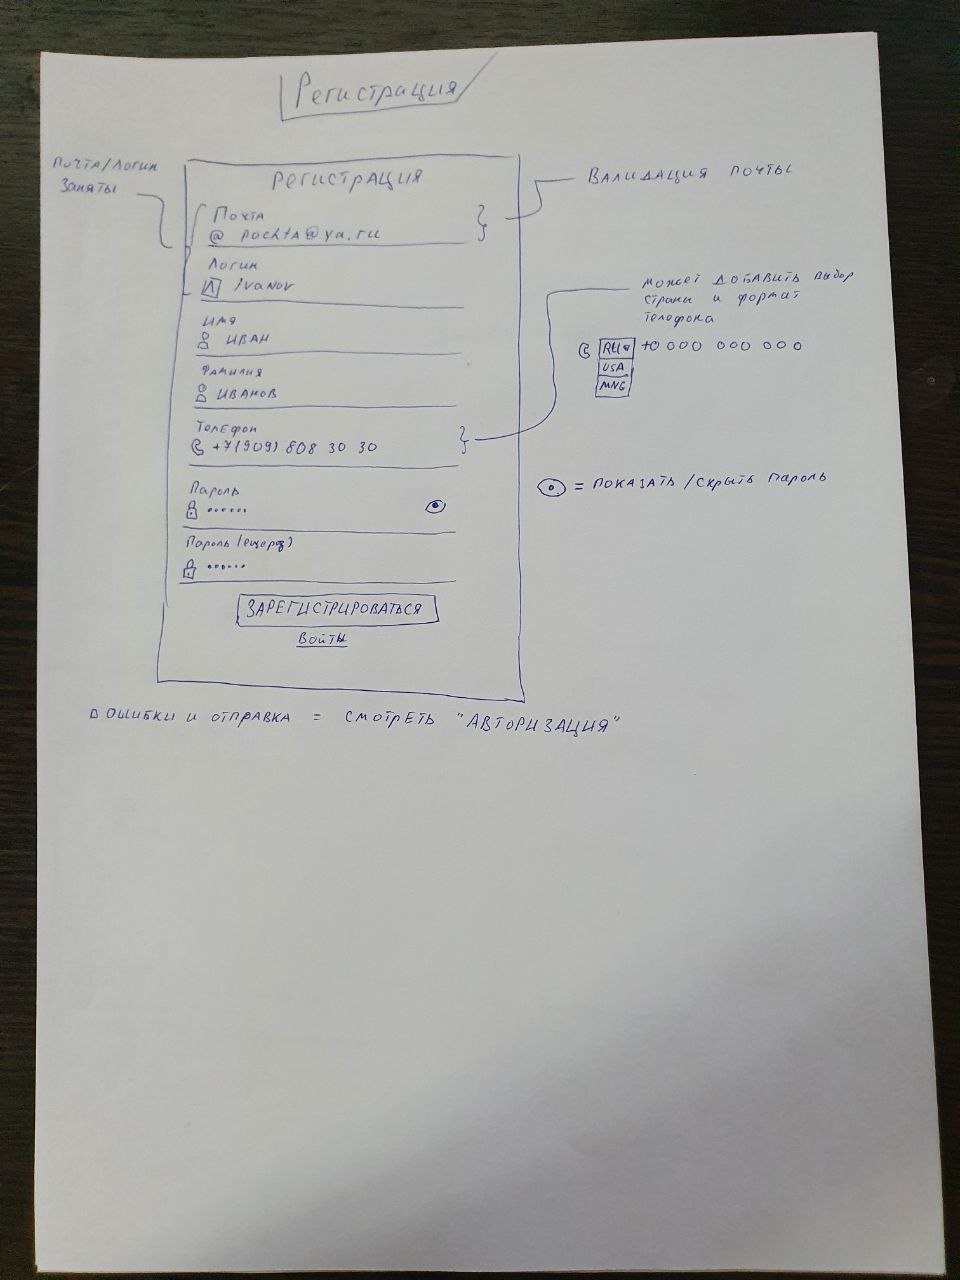 Регистрация
Почта/Логин
Заняты
РЕГИСТРАЦИЯ
Почта
@ pochta@ya.ru
Логин
Ivanov
Имя
ИВАН
Фамилия
ИВАНОВ
Телефон
+7(909) 808 30 30
Пароль
••••••
Пароль (ещё раз)
••••••
ЗАРЕГИСТРИРОВАТЬСЯ
Войти
ВАЛИДАЦИЯ ПОЧТЫ
Может ДОБАВИТЬ выбор
страны и формат
телефона
RU +0 000 000 000
USA
MNG
= ПОКАЗАТЬ / СКРЫТЬ ПАРОЛЬ
ОШИБКИ И ОТПРАВКА = СМОТРЕТЬ "АВТОРИЗАЦИЯ"